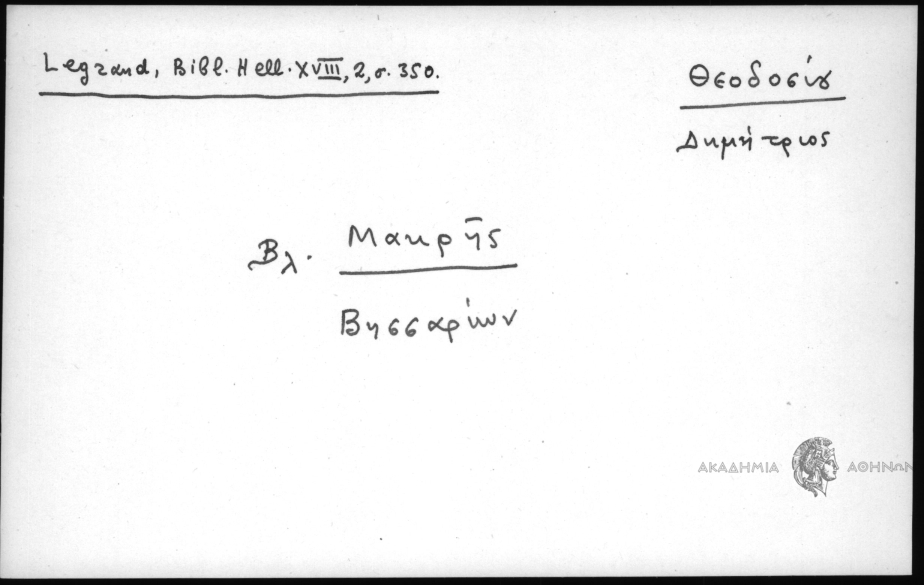 Legrand, Bibl. Hell. XVIII, 2, σ. 350.
Θεοδοσίȣ
Δημήτριος
Βλ. Μακρῆς
Βησσαρίων
ΑΚΑΔΗΜΙΑ ΑΘΗΝΩΝ